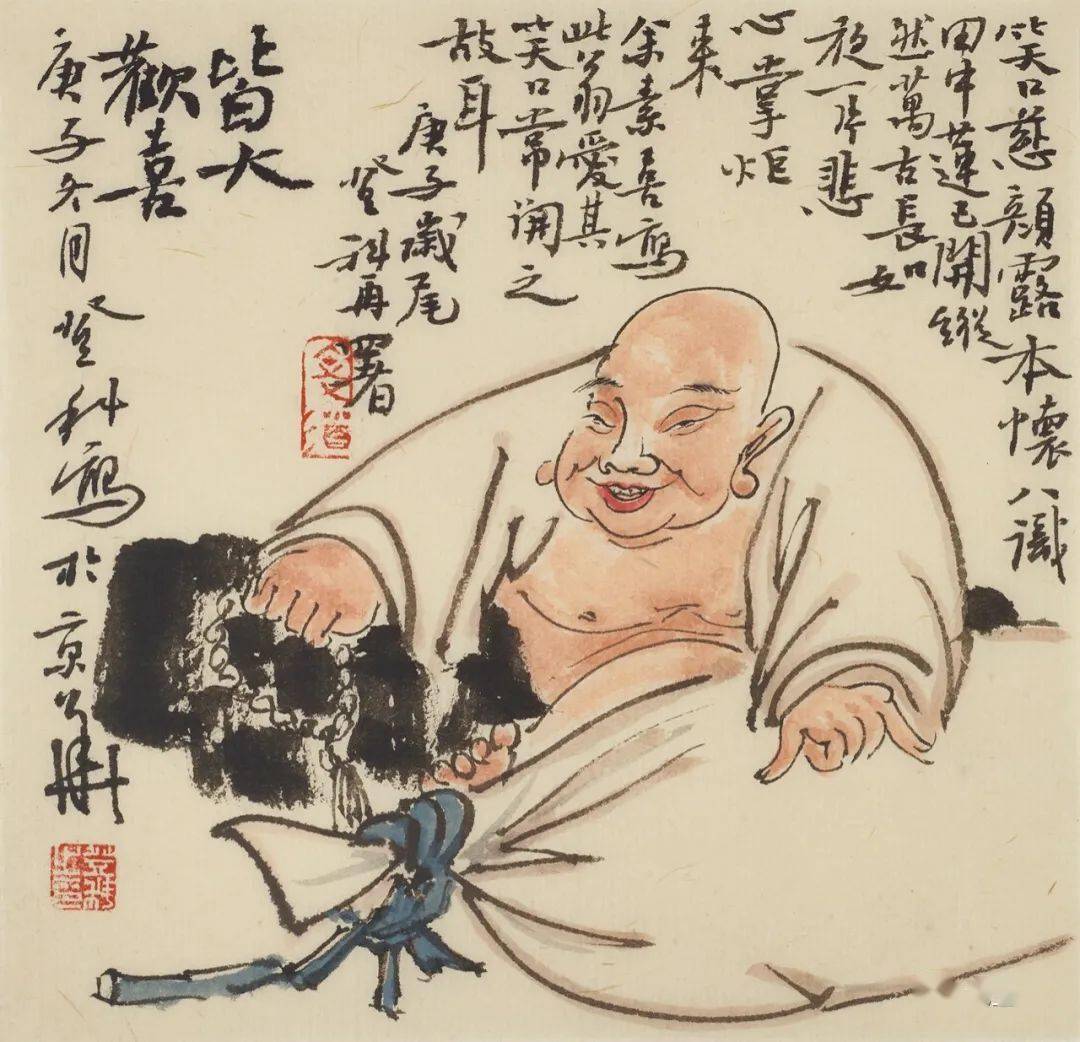 笑口慈顔露本懷八識
田中蓮已開縱
然萬古長如
夜一片悲
心掌炬
来
余素喜寫
此翁愛其
笑口常開之
故耳
庚子歲尾
登科再署
皆大
歡喜
庚子冬月登科寫於京華